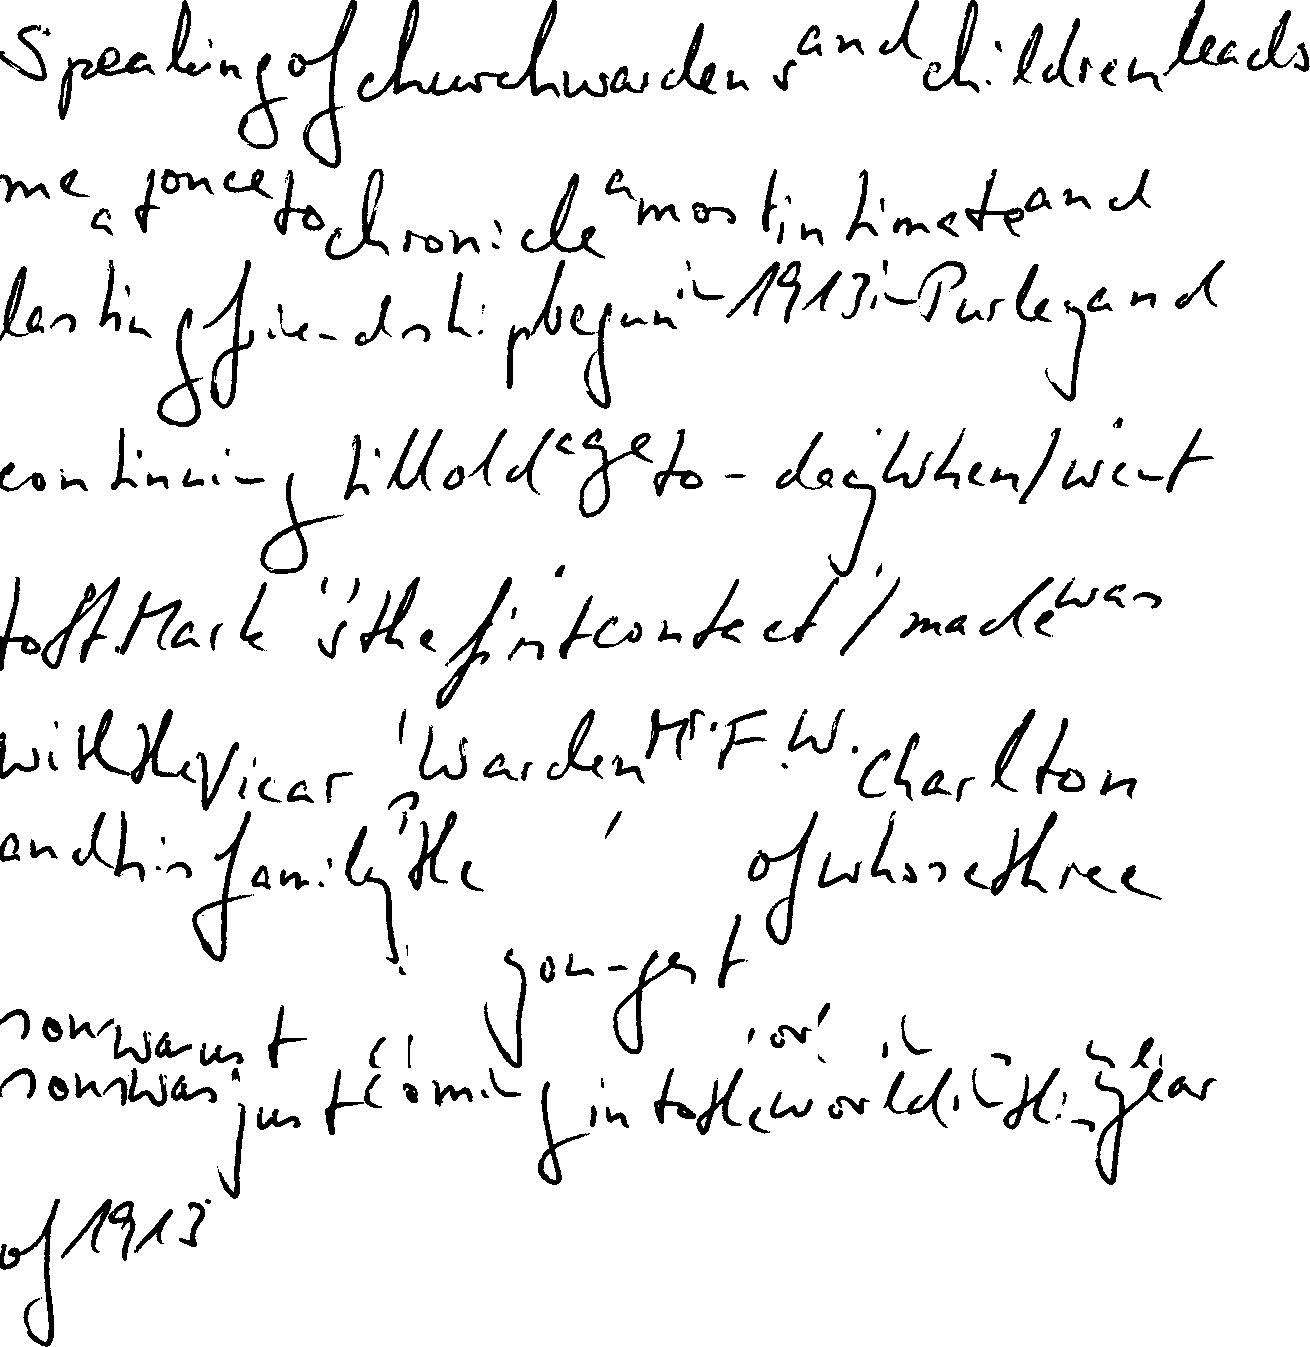 Speaking of churchwardens and children leads
me at once to chronicle a most intimate and
lasting friendship begun in 1913 in Purley and
continuing till old age to-day When I went
to St. Mark's the first contact I made was
with the Vicar's Warden Mr. F. W. Charlton
and his family the of whose three
youngest
son was just
sons was just coming into the world in this year
of 1913